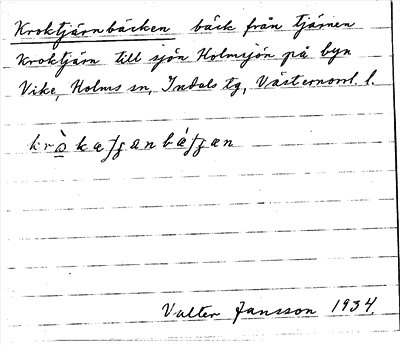 Kroktjärnbäcken bäck från tjärnen
Kroktjärn till sjön Holmsjön på byn
Vike, Holms sn, Indals tg, Västernorrl. l.
Valter Jansson 1934.